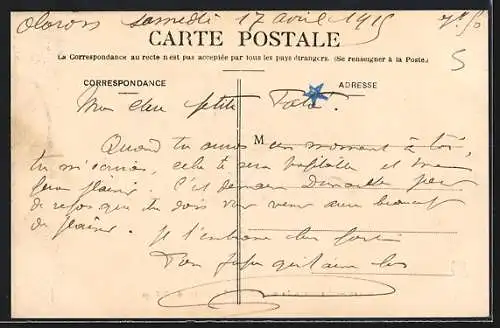 Oloron Samedi 17 avril 1915
CARTE POSTALE
La Correspondance au recto n'est pas acceptée par tous les pays étrangers. (Se renseigner à la Poste.)
CORRESPONDANCE
ADRESSE
5
Mon cher petit
M
Quand tu auras un moment à toi,
tu m'écriras, cela te sera et me
fera plaisir. C'est demain Dimanche
de repos que tu dois voir venir avec beaucoup
de plaisir. Je t'embrasse bien fort
Ton qui t'aime bien